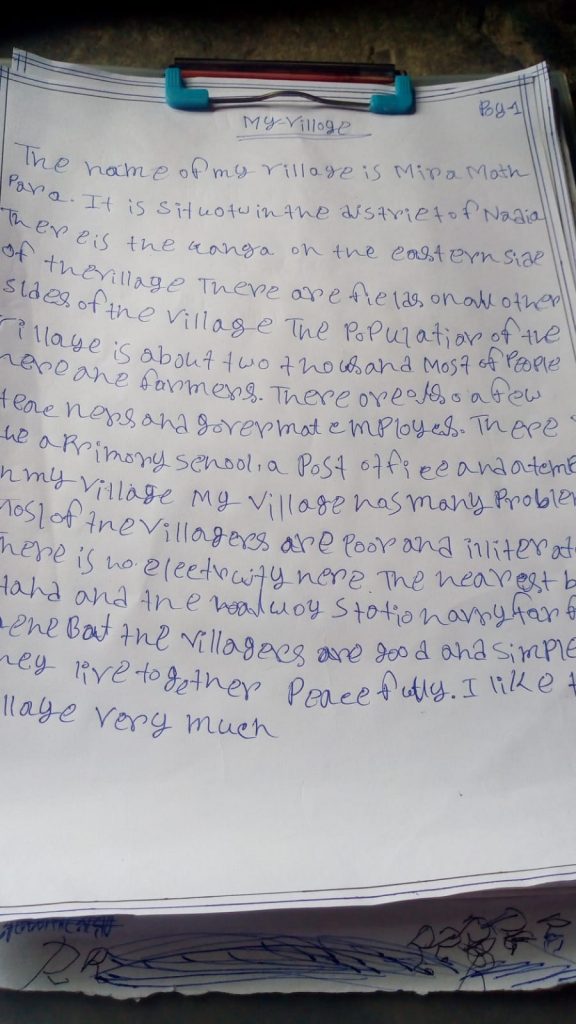 Pog-1
My Village
The name of my village is Mira Math
Para. It is situotwin the district of Nadia
There is the Ganga on the eastern side
of the village There are fields on all other
sides of the village The Population of the
village is about two thousand Most of People
here are farmers. There are also a few
teachers and govermat employes. There
a Primory school, a Post office and a teme
my village My village has many Problem
Most of the villagers are Poor and illiterat
There is no electricity here. The nearest b
tand and the railway Stationarry far f
here Bat the villagers are good and simple
hey live together Peacefully. I like t
llage very much